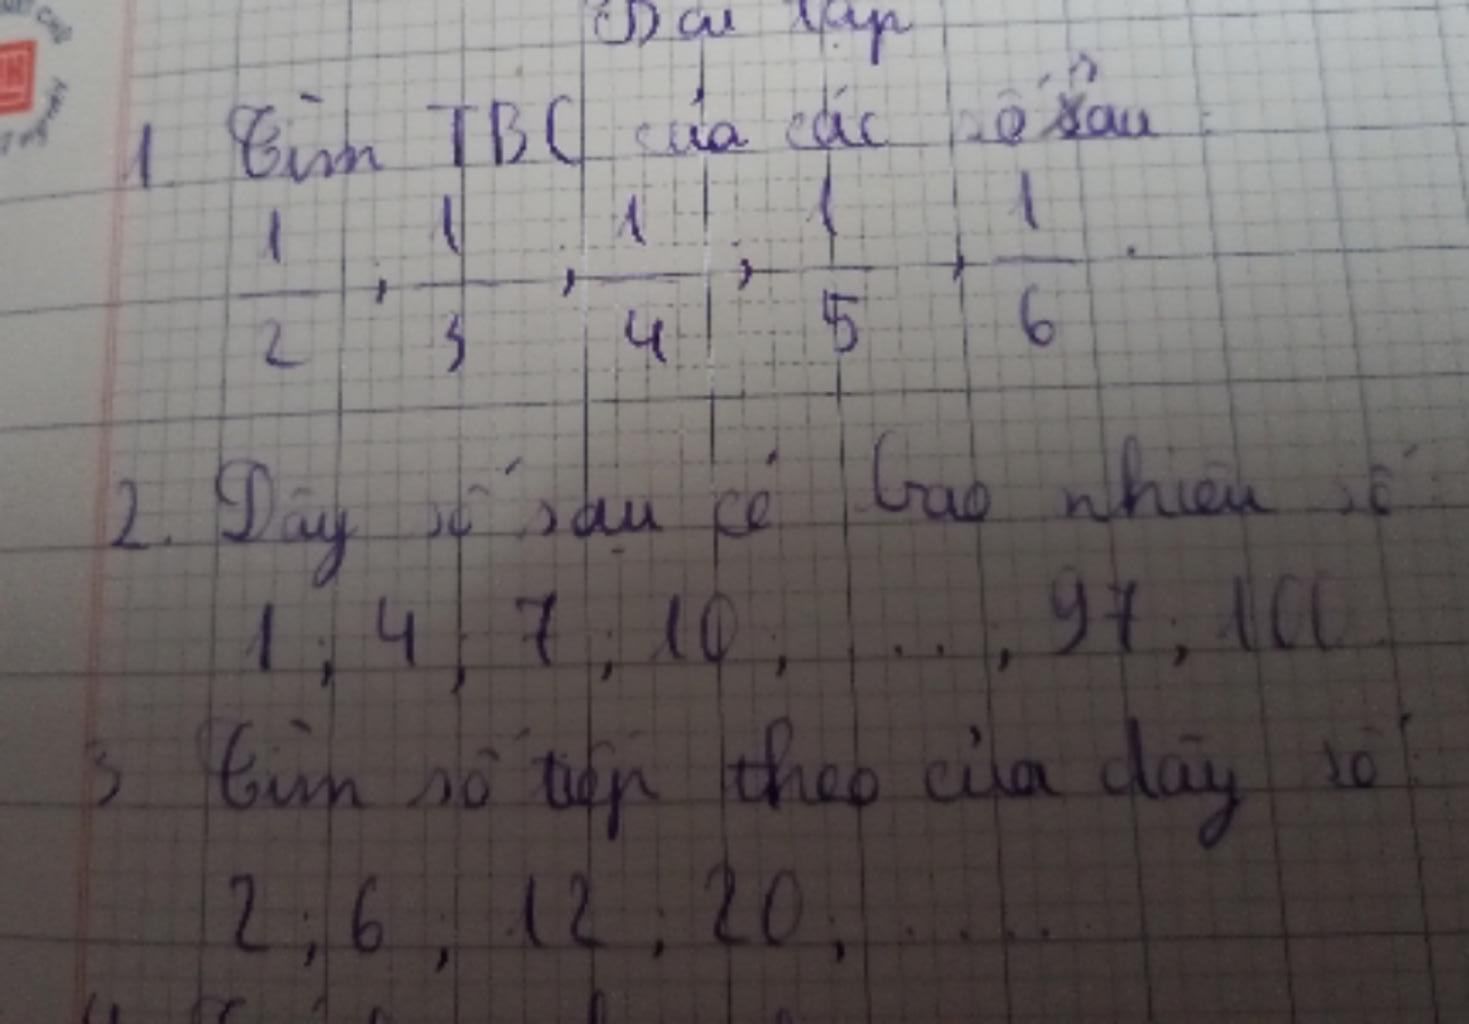 Bài tập
1 Tìm TBC của các số sau :
1/2 ; 1/3 ; 1/4 ; 1/5 ; 1/6 .
2. Dãy số sau có bao nhiêu số
1 ; 4 ; 7 ; 10 ; ... ; 97 ; 100
3 Tìm số tiếp theo của dãy số
2 ; 6 ; 12 ; 20 ; .....